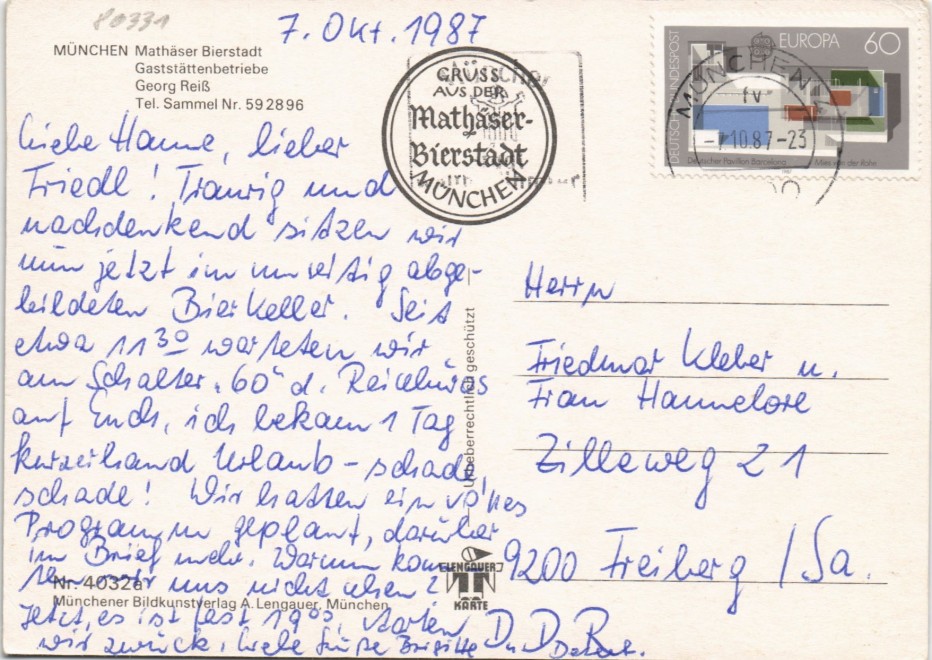 80331
7. Okt. 1987
MÜNCHEN Mathäser Bierstadt
Gaststättenbetriebe
Georg Reiß
Tel. Sammel Nr. 592896
GRUSS
AUS DER
Mathäser-
Bierstadt
MÜNCHEN
DEUTSCHE BUNDESPOST
EUROPA 60
Deutscher Pavillon Barcelona
Mies van der Rohe
1987
MÜNCHEN
fv
-7.10.87-23
Liebe Hanne, lieber
Friedl! Traurig und
nachdenkend sitzen wir
nun jetzt im umseitig abge-
bildeten Bierkeller. Seit
etwa 11 30 warteten wir
am Schalter "60" d. Reisebüros
auf Euch, ich bekam 1 Tag
kurzerhand Urlaub - schade,
schade! Wir hatten ein
Programm geplant, darüber
im Brief mehr. Warum kom
wir uns nicht sehen?
Jetzt, es ist fast 19 00, starten
wir zurück, Liebe Grüße Brigitte
Herrn
Friedmar Kleber u.
Frau Hannelore
Zilleweg 21
9200 Freiberg / Sa.
Urheberrechtlich geschützt
Nr. 4032a
Münchener Bildkunstverlag A. Lengauer, München
LENGAUER
KARTE